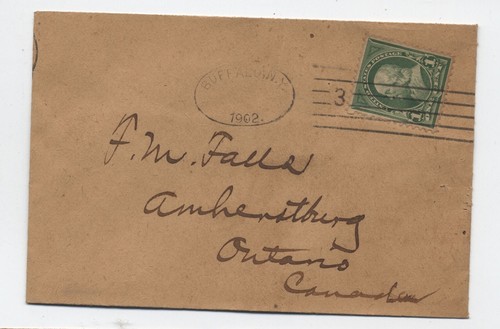 BUFFALO, N.Y.
1902.
3
1 CENT 1
F. M. Falls
Amherstburg
Ontario
Canada